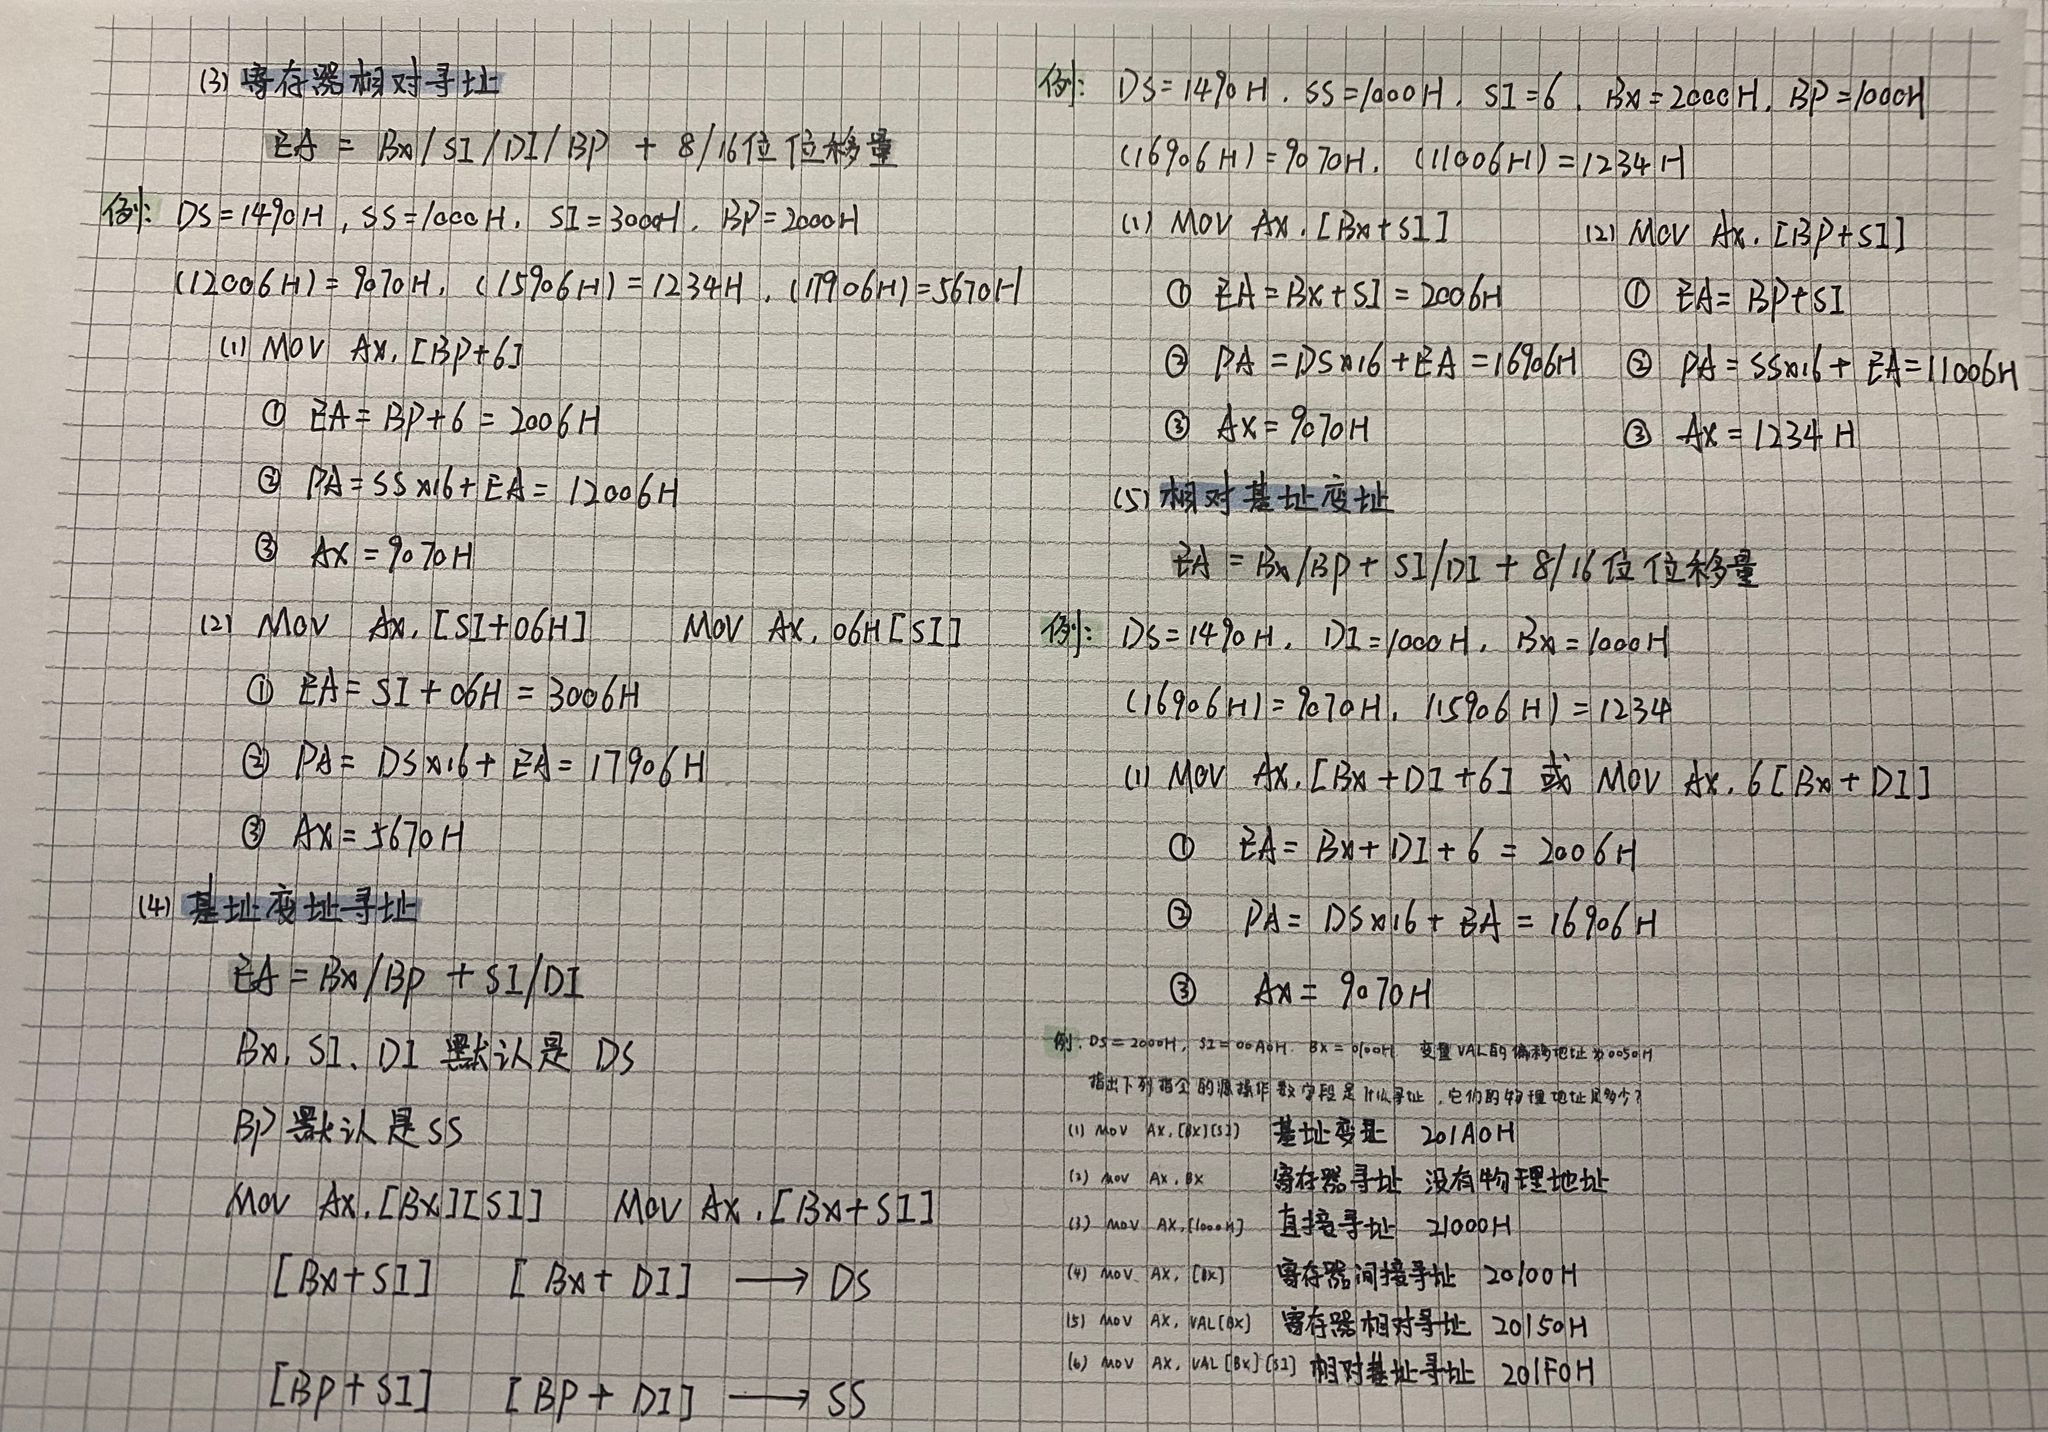 (3) 寄存器相对寻址
EA = BX/SI/DI/BP + 8/16位位移量
例: DS=1490H, SS=1000H, SI=3000H, BP=2000H
(12006H)=9070H, (15906H)=1234H, (17906H)=5670H
(1) MOV AX, [BP+6]
① EA=BP+6=2006H
② PA=SS×16+EA=12006H
③ AX=9070H
(2) MOV AX, [SI+06H] MOV AX, 06H[SI]
① EA=SI+06H=3006H
② PA=DS×16+EA=17906H
③ AX=5670H
(4) 基址变址寻址
EA=BX/BP+SI/DI
BX, SI、DI 默认是 DS
BP 默认是SS
MOV AX, [BX][SI] MOV AX, [BX+SI]
[BX+SI] [BX+DI] → DS
[BP+SI] [BP+DI] → SS
例: DS=1490H, SS=1000H, SI=6, BX=2000H, BP=1000H
(16906H)=9070H, (11006H)=1234H
(1) MOV AX, [BX+SI] (2) MOV AX, [BP+SI]
① EA=BX+SI=2006H ① EA=BP+SI
② PA=DS×16+EA=16906H ② PA=SS×16+EA=11006H
③ AX=9070H ③ AX=1234H
(5) 相对基址变址
EA=BX/BP+SI/DI+8/16位位移量
例: DS=1490H, DI=1000H, BX=1000H
(16906H)=9070H, (15906H)=1234
(1) MOV AX, [BX+DI+6] 或 MOV AX, 6[BX+DI]
① EA=BX+DI+6=2006H
② PA=DS×16+EA=16906H
③ AX=9070H
例: DS=2000H, SI=00A0H, BX=0100H 变量VAL的偏移地址为0050H
指出下列指令的源操作数字段是什么寻址,它们的物理地址是多少?
(1) MOV AX, [BX][SI] 基址变址 201A0H
(2) MOV AX, BX 寄存器寻址 没有物理地址
(3) MOV AX, [1000H] 直接寻址 21000H
(4) MOV AX, [BX] 寄存器间接寻址 20100H
(5) MOV AX, VAL[BX] 寄存器相对寻址 20150H
(6) MOV AX, VAL[BX][SI] 相对基址寻址 201F0H